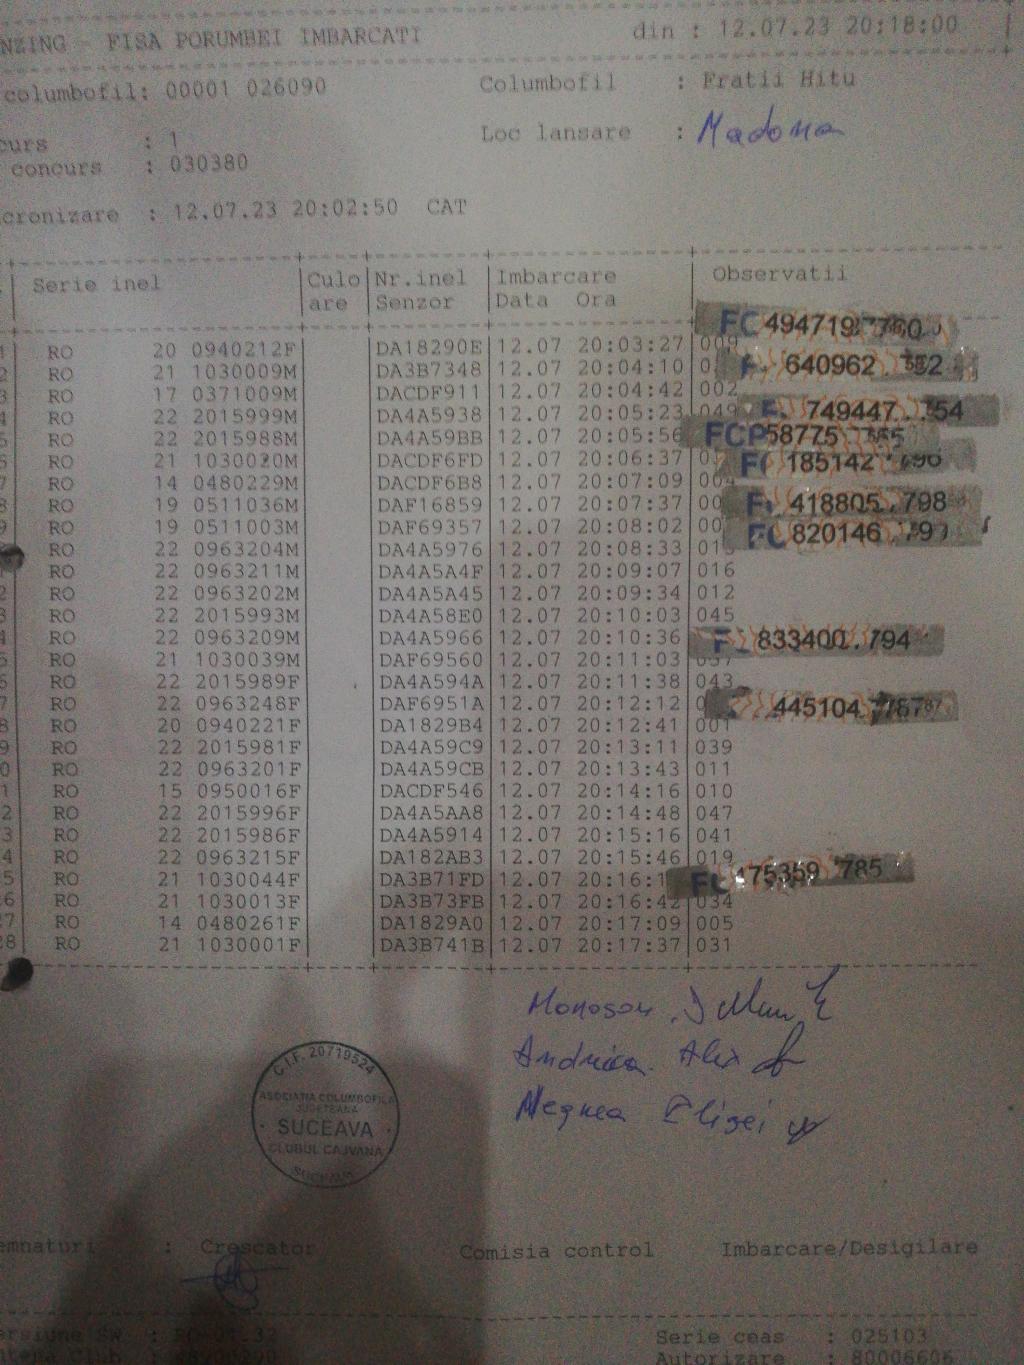 NZING - FISA PORUMBEI IMBARCATI din : 12.07.23 20:18:00
columbofil: 00001 026090 Columbofil : Fratii Hitu
curs : 1 Loc lansare : Madona
concurs : 030380
cronizare : 12.07.23 20:02:50 CAT
Serie inel Culo Nr.inel Imbarcare Observatii
are Senzor Data Ora
FC 494719 760
1 RO 20 0940212F DA18290E 12.07 20:03:27 009
2 RO 21 1030009M DA3B7348 12.07 20:04:10 640962
3 RO 17 0371009M DACDF911 12.07 20:04:42 002
4 RO 22 2015999M DA4A5938 12.07 20:05:23 049 749447 754
5 RO 22 2015988M DA4A59BB 12.07 20:05:56 FCP58775
6 RO 21 1030020M DACDF6FD 12.07 20:06:37 185142
7 RO 14 0480229M DACDF6B8 12.07 20:07:09 004
8 RO 19 0511036M DAF16859 12.07 20:07:37 418805 798
9 RO 19 0511003M DAF69357 12.07 20:08:02 820146
RO 22 0963204M DA4A5976 12.07 20:08:33 015
1 RO 22 0963211M DA4A5A4F 12.07 20:09:07 016
2 RO 22 0963202M DA4A5A45 12.07 20:09:34 012
3 RO 22 2015993M DA4A58E0 12.07 20:10:03 045
4 RO 22 0963209M DA4A5966 12.07 20:10:36 833400 794
5 RO 21 1030039M DAF69560 12.07 20:11:03 037
6 RO 22 2015989F DA4A594A 12.07 20:11:38 043
7 RO 22 0963248F DAF6951A 12.07 20:12:12 445104
8 RO 20 0940221F DA1829B4 12.07 20:12:41 001
9 RO 22 2015981F DA4A59C9 12.07 20:13:11 039
0 RO 22 0963201F DA4A59CB 12.07 20:13:43 011
1 RO 15 0950016F DACDF546 12.07 20:14:16 010
2 RO 22 2015996F DA4A5AA8 12.07 20:14:48 047
3 RO 22 2015986F DA4A5914 12.07 20:15:16 041
4 RO 22 0963215F DA182AB3 12.07 20:15:46 019
5 RO 21 1030044F DA3B71FD 12.07 20:16:1 475359 785
6 RO 21 1030013F DA3B73FB 12.07 20:16:42 034
27 RO 14 0480261F DA1829A0 12.07 20:17:09 005
28 RO 21 1030001F DA3B741B 12.07 20:17:37 031
Andrica Alex
Negrea Elisei
C.I.F. 20719524
ASOCIATIA COLUMBOFILA
JUDETEANA
SUCEAVA
CLUBUL CAJVANA
SUCEAVA
emnaturi : Crescator Comisia control Imbarcare/Desigilare
ersiune SW : Serie ceas : 025103
ntena Club : Autorizare : 80006606